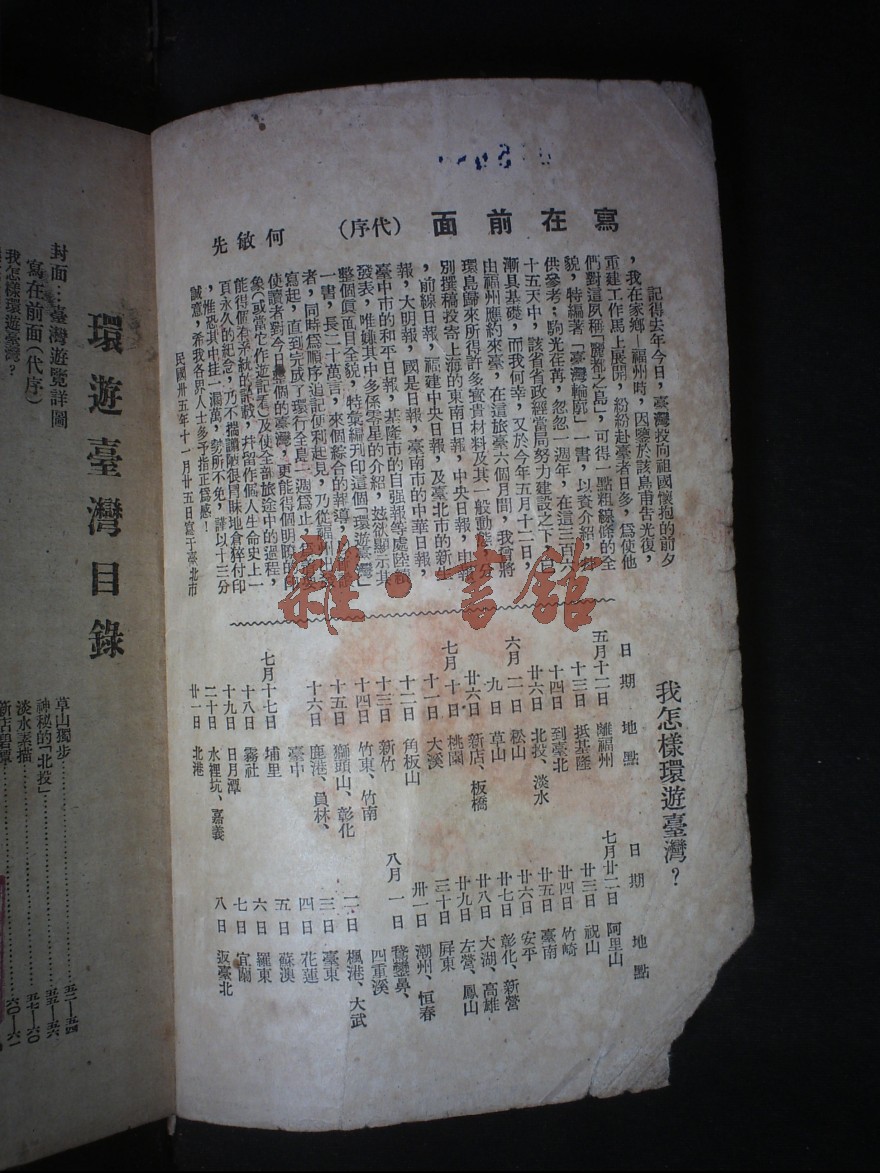 寫在前面(代序) 何敏先
記得去年今日,臺灣投向祖國懷抱的前夕
,我在家鄉—福州時,因鑒於該島甫告光復,
重建工作馬上展開,紛紛赴臺者日多,爲使他
們對這夙稱「麗都之島」,可得一點粗線條的全
貌,特編著「臺灣輪廓」一書,以資介紹,
供參考;駒光荏苒,忽忽一週年,在這三百六
十五天中,該省省政經當局努力建設之下,日
漸具基礎,而我何幸,又於今年五月十二日,
由福州應約來臺,在這旅臺六個月間,我曾將
環島歸來所得許多寶貴材料及其一般動態,分
別撰稿投寄上海的東南日報,中央日報,申報
,前線日報,福建中央日報,及臺北市的新生
報,大明報,國是日報,臺南市的中華日報,
臺中市的和平日報,基隆市的自强報等處陸續
發表,唯嫌其中多係零星的介紹,茲欲顯示其
整個眞面目全貌,特彙編刊印這個「環遊臺灣」
一書,長二十萬言,來個綜合的報導,
者,同時爲順序追記便利起見,乃從福州
寫起,直到完成了環行全島一週爲止,
使讀者對今日整個的臺灣,更能得個明瞭的印
象(或當它作遊記看)及使全部旅途中的過程,
能得個有系統的記載,幷留作個人生命史上一
頁永久的紀念,乃不揣譾陋很冒昧地倉猝付印
,惟恐其中挂一漏萬,勢所不免,請以十三分
誠意,希我各界人士多予指正爲感!
民國卅五年十一月廿五日寫于臺北市
我怎樣環遊臺灣?
日期 地點
五月十二日 離福州
十三日 抵基隆
十四日 到臺北
廿六日 北投、淡水
六月二日 松山
九日 草山
廿六日 新店、板橋
七月十日 桃園
十一日 大溪
十二日 角板山
十三日 新竹
十四日 竹東、竹南
十五日 獅頭山、彰化
十六日 鹿港、員林、
臺中
七月十七日 埔里
十八日 霧社
十九日 日月潭
二十日 水裡坑、嘉義
廿一日 北港
日期 地點
七月廿二日 阿里山
廿三日 祝山
廿四日 竹崎
廿五日 臺南
廿六日 安平
廿七日 彰化、新營
廿八日 大湖、高雄
廿九日 左營、鳳山
三十日 屏東
卅一日 潮州、恒春
八月一日 鵞鑾鼻、
四重溪
二日 楓港、大武
三日 臺東
四日 花蓮
五日 蘇澳
六日 羅東
七日 宜蘭
八日 返臺北
環遊臺灣目錄
封面…臺灣遊覽詳圖
寫在前面(代序)
我怎樣環遊臺灣?
草山獨步…五二—五四
神秘的「北投」…五五—五六
淡水素描…五七—六〇
新店碧潭…六〇—六一
雜·書館